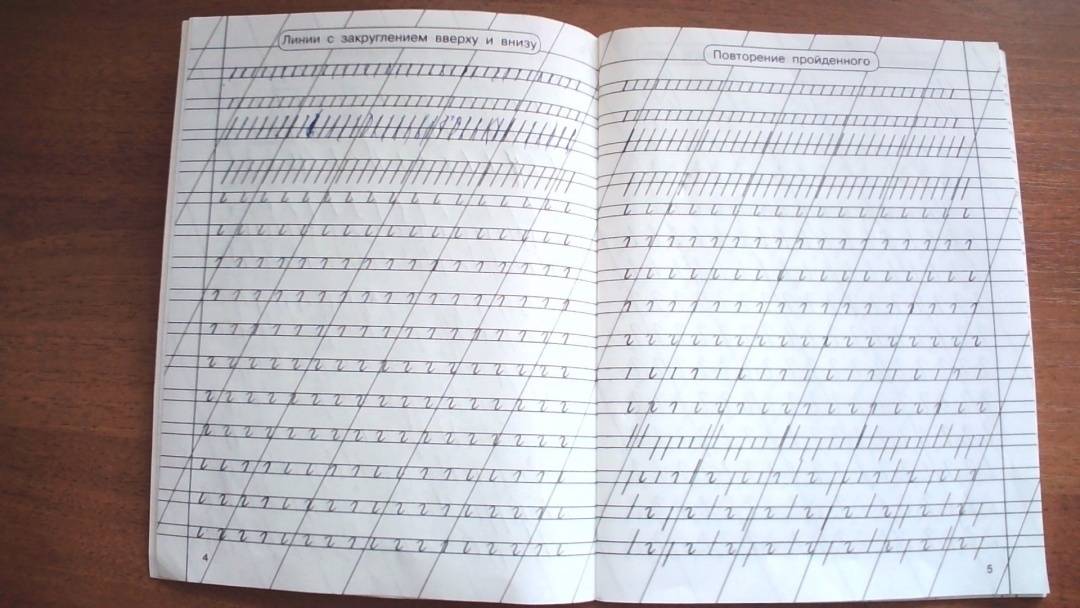 Линии с закруглением вверху и внизу
4
Повторение пройденного
5